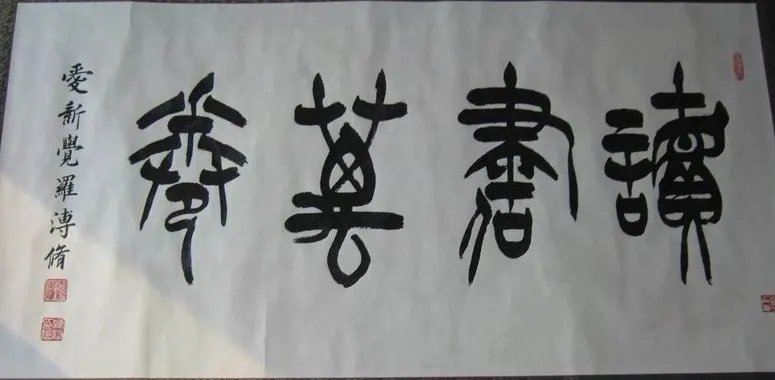 讀書萬卷
愛新覺羅溥脩